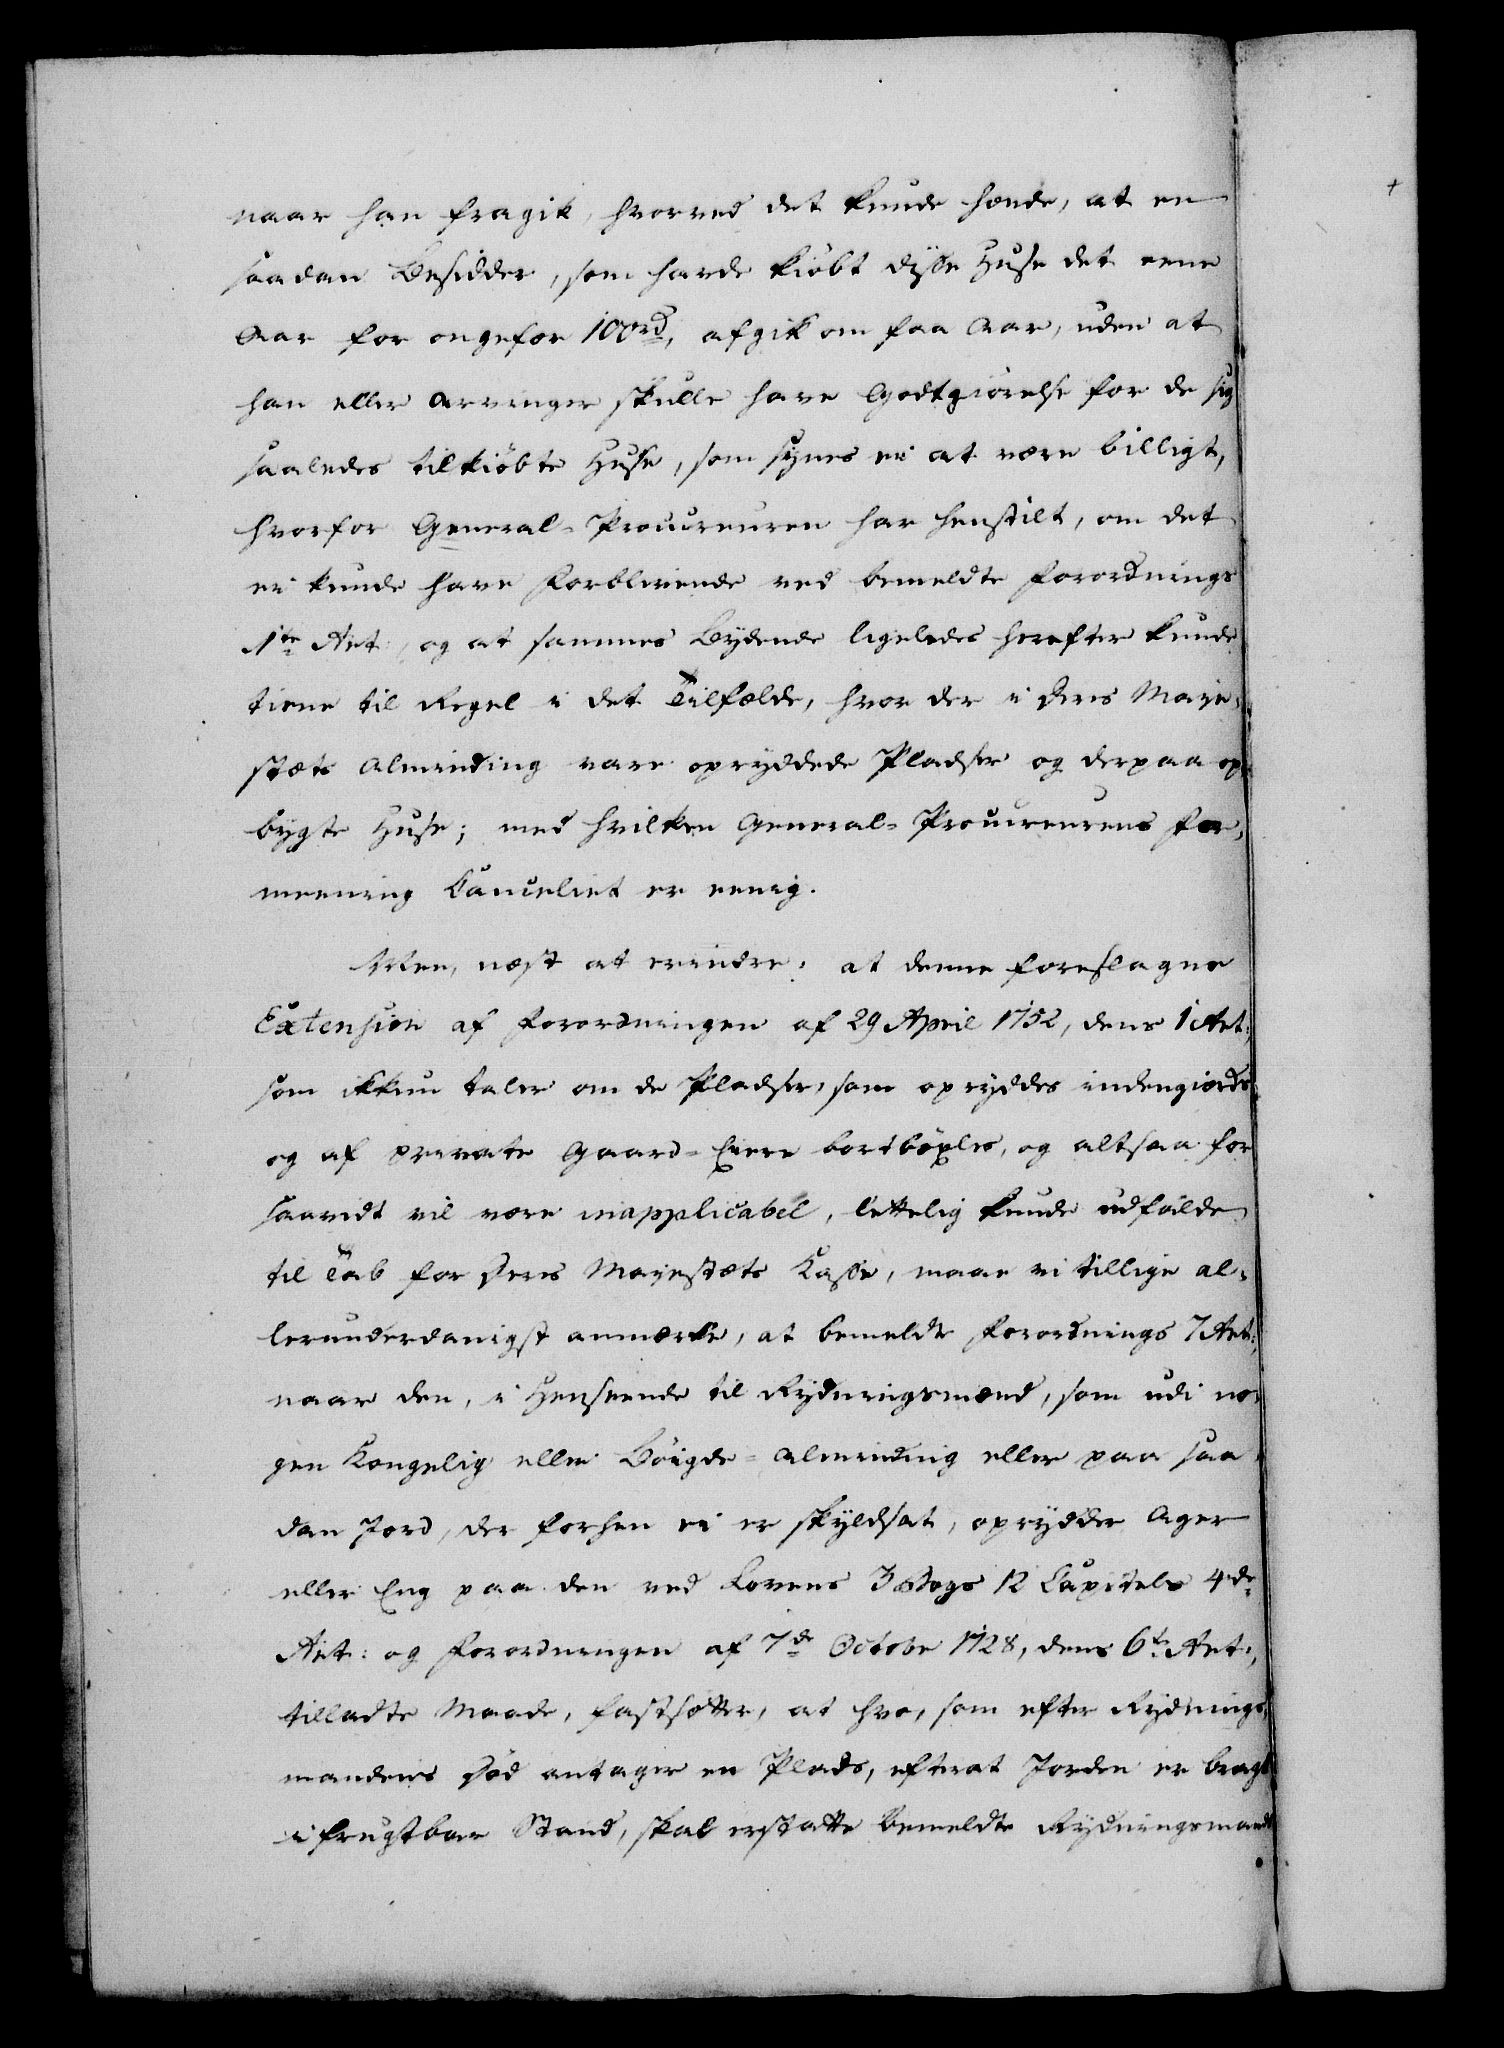 naar han fragik, hvorved det kunde hænde, at en
saadan Besidder, som havde kiøbt disse Huse det eene
Aar for ongefær 100 rd, afgik om faa Aar, uden at
han eller Arvinger skulle have Godtgiørelse for de sig
saaledes tilkiøbte Huse, som synes ei at være billigt,
hvorfor General-Procureuren har henstilt, om det
ei kunde have Forblivende ved bemeldte Forordnings
1te Art:, og at sammes Bydende ligeledes herefter kunde
tiene til Regel i det Tilfælde, hvor der i Deres Maje-
stæts Alminding vare opryddede Pladser og derpaa op-
bygte Huse; med hvilken General-Procureurens For-
meening Canceliet er eenig.
Men, næst at erindre: at denne foreslagne
Extension af Forordningen af 29 April 1752, dens 1 Art:,
som ikkun taler om de Pladser, som opryddes indengierds
og af private Gaard-Eiere bortbøxles, og altsaa for
saavidt vil være inapplicabel, lettelig kunde udfalde
til Tab for Deres Majestæts Casse, maae vi tillige al-
lerunderdanigst anmærke, at bemeldte Forordnings 7 Art:,
naar den, i Henseende til Rydningsmænd, som udi no-
gen Kongelig eller Bøigde-Alminding eller paa saa-
dan Jord, der forhen ei er skyldsat, opryddder Ager
eller Eng paa den ved Lovens 3 Bogs 12 Capitels 4de
Art: og Forordningen af 7de Octobr 1728, dens 6te Art:,
tilladte Maade, fastsætter, at hvo, som efter Rydnings-
mandens Død antager en Plads, efterat Jorden er bragt
i frugtbar Stand, skal erstatte bemeldte Rydningsmands